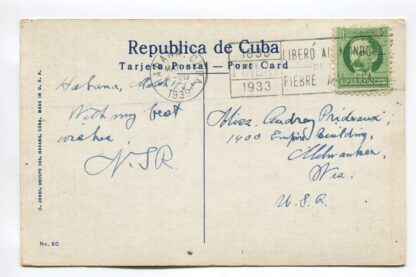 Republica de Cuba
Tarjeta Postal — Post Card
HABANA
1939
1833
FINLAY
1933
LIBERÓ AL MUNDO
DE
FIEBRE
Habana,
With my best
wishes
N.S.R.
Miss. Audrey Prideaux,
1400 Empire Building,
Milwaukee,
Wis.
U.S.A.
C. JORDI, OBISPO 106, HAVANA, CUBA. MADE IN U.S.A.
No. 60